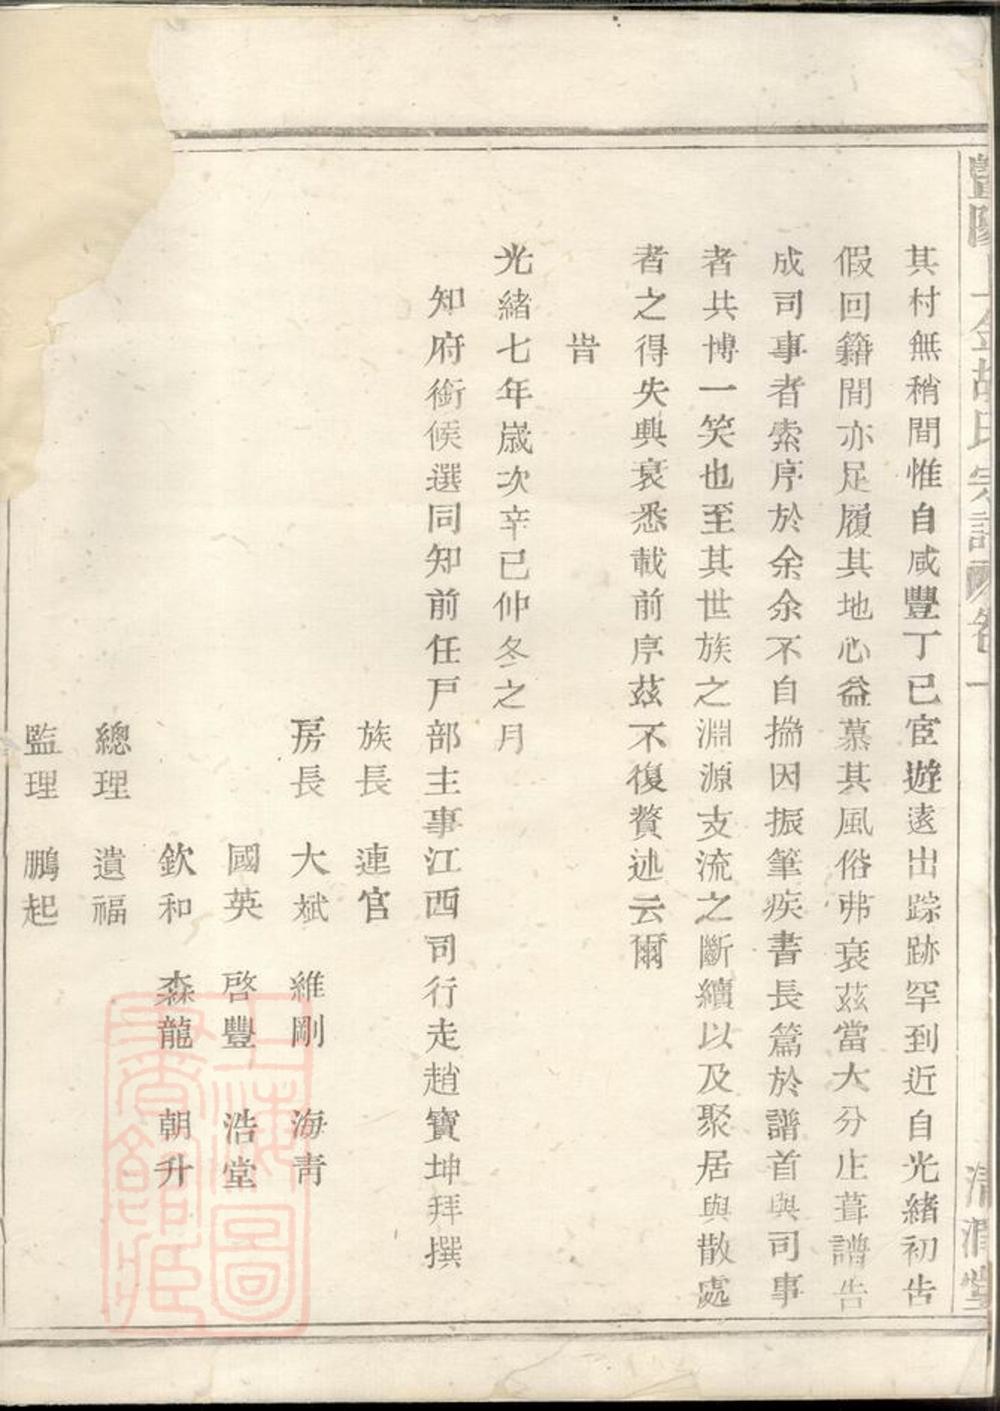 其村無稍間惟自咸豐丁巳宦遊遠出踪跡罕到近自光緒初告
假回籍間亦足履其地心益慕其風俗弗衰茲當大分庄葺譜告
成司事者索序於余余不自揣因振筆疾書長篇於譜首與司事
者共博一笑也至其世族之淵源支流之斷續以及聚居與散處
者之得失興衰悉載前序茲不復贅述云爾
旹
光緒七年歲次辛巳仲冬之月
知府銜候選同知前任戶部主事江西司行走趙寶坤拜撰
族長 連官
房長 大斌 維剛 海青
國英 啓豐 浩堂
欽和 森龍 朝升
總理 遺福
監理 鵬起
上海圖書館藏